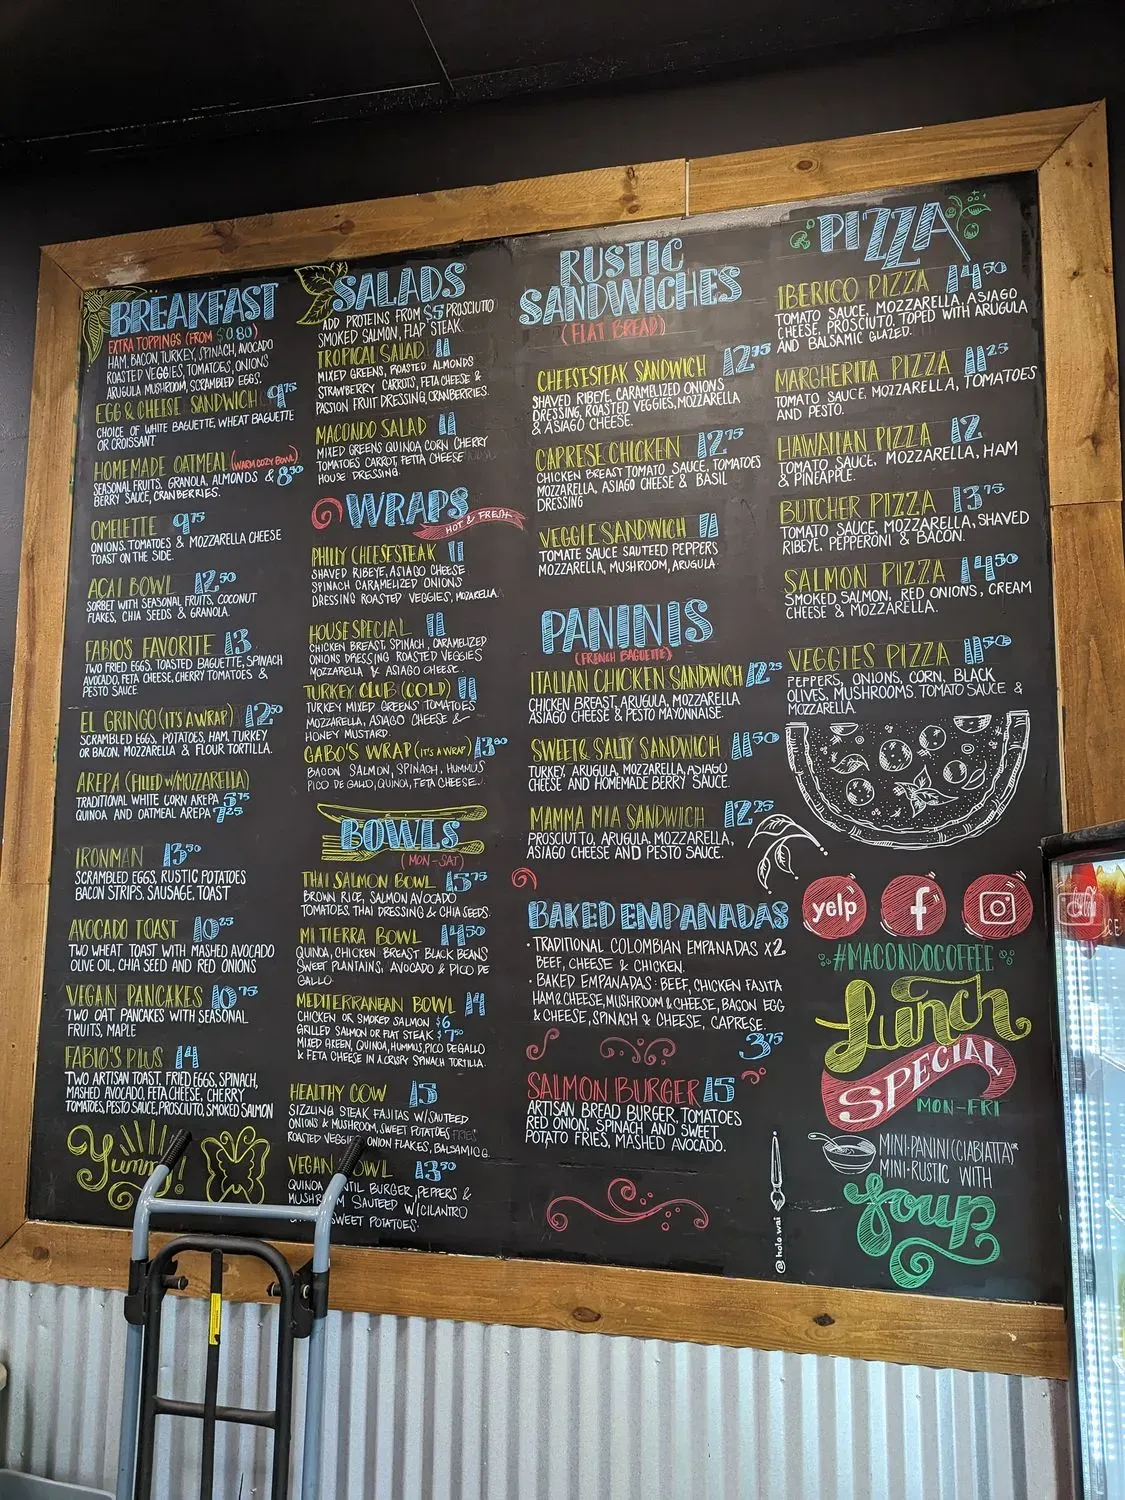 BREAKFAST
EXTRA TOPPINGS (FROM $0.80)
HAM, BACON, TURKEY, SPINACH, AVOCADO
ROASTED VEGGIES, TOMATOES, ONIONS
ARUGULA MUSHROOM, SCRAMBLED EGGS.
EGG & CHEESE SANDWICH 9.75
CHOICE OF WHITE BAGUETTE, WHEAT BAGUETTE
OR CROISSANT
HOMEMADE OATMEAL (WARM COZY BOWL)
SEASONAL FRUITS, GRANOLA, ALMONDS & 8.50
BERRY SAUCE, CRANBERRIES.
OMELETTE 9.75
ONIONS, TOMATOES & MOZZARELLA CHEESE
TOAST ON THE SIDE.
ACAI BOWL 12.50
SORBET WITH SEASONAL FRUITS, COCONUT
FLAKES, CHIA SEEDS & GRANOLA.
FABIO'S FAVORITE 13
TWO FRIED EGGS, TOASTED BAGUETTE, SPINACH
AVOCADO, FETA CHEESE, CHERRY TOMATOES &
PESTO SAUCE
EL GRINGO (IT'S A WRAP) 12.50
SCRAMBLED EGGS, POTATOES, HAM, TURKEY
OR BACON, MOZZARELLA & FLOUR TORTILLA.
AREPA (FILLED W/MOZZARELLA)
TRADITIONAL WHITE CORN AREPA 5.75
QUINOA AND OATMEAL AREPA 7.25
IRONMAN 13.50
SCRAMBLED EGGS, RUSTIC POTATOES
BACON STRIPS, SAUSAGE, TOAST
AVOCADO TOAST 10.25
TWO WHEAT TOAST WITH MASHED AVOCADO
OLIVE OIL, CHIA SEED AND RED ONIONS
VEGAN PANCAKES 10.75
TWO OAT PANCAKES WITH SEASONAL
FRUITS, MAPLE
FABIO'S PLUS 14
TWO ARTISAN TOAST, FRIED EGGS, SPINACH,
MASHED AVOCADO, FETA CHEESE, CHERRY
TOMATOES, PESTO SAUCE, PROSCIUTO, SMOKED SALMON
Yummy!
SALADS
ADD PROTEINS FROM $5 PROSCIUTTO
SMOKED SALMON, FLAP STEAK.
TROPICAL SALAD 11
MIXED GREENS, ROASTED ALMONDS
STRAWBERRY CARROTS, FETA CHEESE &
PASSION FRUIT DRESSING, CRANBERRIES.
MACONDO SALAD 11
MIXED GREENS QUINOA CORN CHERRY
TOMATOES CARROT, FETTA CHEESE
HOUSE DRESSING.
WRAPS
HOT & FRESH
PHILLY CHEESESTEAK 11
SHAVED RIBEYE, ASIAGO CHEESE
SPINACH CARAMELIZED ONIONS
DRESSING ROASTED VEGGIES, MOZARELLA
HOUSE SPECIAL 11
CHICKEN BREAST, SPINACH, CARAMELIZED
ONIONS DRESSING ROASTED VEGGIES
MOZZARELLA & ASIAGO CHEESE
TURKEY CLUB (COLD) 11
TURKEY MIXED GREENS TOMATOES
MOZZARELLA, ASIAGO CHEESE &
HONEY MUSTARD
GABO'S WRAP (IT'S A WRAP) 13.80
BACON SALMON, SPINACH, HUMMUS
PICO DE GALLO, QUINOA, FETA CHEESE
BOWLS
(MON-SAT)
THAI SALMON BOWL 15.75
BROWN RICE, SALMON AVOCADO
TOMATOES, THAI DRESSING & CHIA SEEDS.
MI TIERRA BOWL 14.50
QUINOA, CHICKEN BREAST BLACK BEANS
SWEET PLANTAINS, AVOCADO & PICO DE
GALLO
MEDITERRANEAN BOWL 14
CHICKEN OR SMOKED SALMON $6
GRILLED SALMON OR FLAT STEAK $7.50
MIXED GREEN, QUINOA, HUMMUS, PICO DE GALLO
& FETA CHEESE IN A CRISPY SPINACH TORTILLA.
HEALTHY COW 15
SIZZLING STEAK FAJITAS W/SAUTEED
ONIONS & MUSHROOM, SWEET POTATOES FRIES
ROASTED VEGGIES, ONION FLAKES, BALSAMIC G.
VEGAN BOWL 13.50
QUINOA, LENTIL BURGER, PEPPERS &
MUSHROOM SAUTEED W/CILANTRO
SWEET POTATOES.
RUSTIC
SANDWICHES
(FLAT BREAD)
CHEESESTEAK SANDWICH 12.95
SHAVED RIBEYE, CARAMELIZED ONIONS
DRESSING, ROASTED VEGGIES, MOZZARELLA
& ASIAGO CHEESE.
CAPRESE CHICKEN 12.75
CHICKEN BREAST TOMATO SAUCE, TOMATOES
MOZZARELLA, ASIAGO CHEESE & BASIL
DRESSING
VEGGIE SANDWICH 11
TOMATE SAUCE SAUTEED PEPPERS
MOZZARELLA, MUSHROOM, ARUGULA
PANINIS
(FRENCH BAGUETTE)
ITALIAN CHICKEN SANDWICH 12.25
CHICKEN BREAST, ARUGULA, MOZZARELLA
ASIAGO CHEESE & PESTO MAYONNAISE.
SWEET & SALTY SANDWICH 11.50
TURKEY, ARUGULA, MOZZARELLA, ASIAGO
CHEESE AND HOMEMADE BERRY SAUCE.
MAMMA MIA SANDWICH 12.25
PROSCIUTTO, ARUGULA, MOZZARELLA,
ASIAGO CHEESE AND PESTO SAUCE.
BAKED EMPANADAS
• TRADITIONAL COLOMBIAN EMPANADAS X2
BEEF, CHEESE & CHICKEN.
• BAKED EMPANADAS: BEEF, CHICKEN FAJITA
HAM & CHEESE, MUSHROOM & CHEESE, BACON EGG
& CHEESE, SPINACH & CHEESE, CAPRESE.
3.75
SALMON BURGER 15
ARTISAN BREAD BURGER, TOMATOES
RED ONION, SPINACH AND SWEET
POTATO FRIES, MASHED AVOCADO.
@holo.wai
PIZZA
IBERICO PIZZA 14.50
TOMATO SAUCE, MOZZARELLA, ASIAGO
CHEESE, PROSCIUTO, TOPED WITH ARUGULA
AND BALSAMIC GLAZED.
MARGHERITA PIZZA 11.25
TOMATO SAUCE, MOZZARELLA, TOMATOES
AND PESTO.
HAWAIIAN PIZZA 12
TOMATO SAUCE, MOZZARELLA, HAM
& PINEAPPLE.
BUTCHER PIZZA 13.75
TOMATO SAUCE, MOZZARELLA, SHAVED
RIBEYE, PEPPERONI & BACON.
SALMON PIZZA 14.50
SMOKED SALMON, RED ONIONS, CREAM
CHEESE & MOZZARELLA.
VEGGIES PIZZA 11.50
PEPPERS, ONIONS, CORN, BLACK
OLIVES, MUSHROOMS, TOMATO SAUCE &
MOZZARELLA
yelp f
#MACONDOCOFFEE
Lunch
SPECIAL
MON-FRI
MINI-PANINI (CIABIATTA) OR
MINI-RUSTIC WITH
Soup